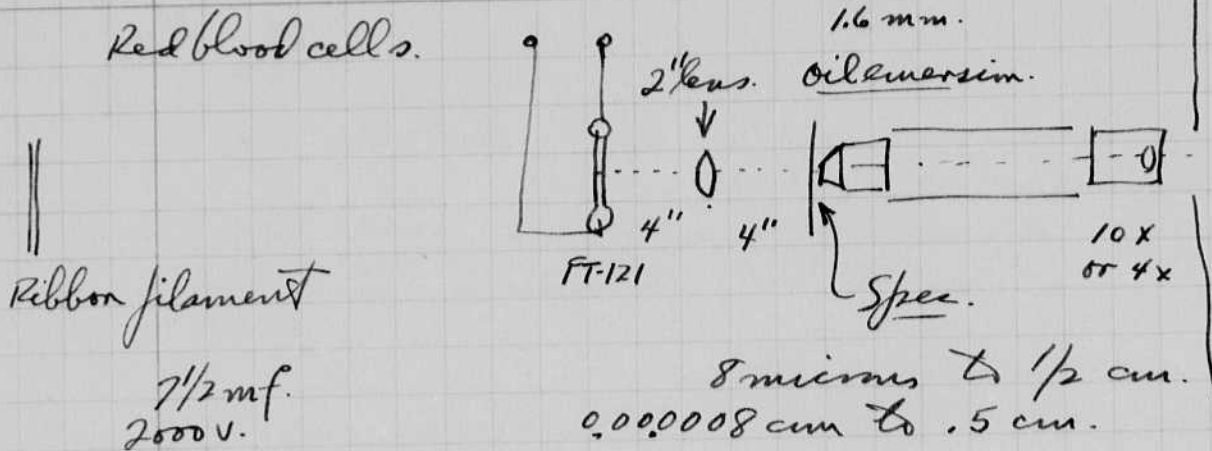 1.6 mm.
Red blood cells.
2" lens. oil emersim.
4" 4"
FT-121
10 x
or 4x
Ribbon filament
Spec.
7 1/2 mf.
2000 V.
8 microns to 1/2 cm.
0.000008 cm to .5 cm.